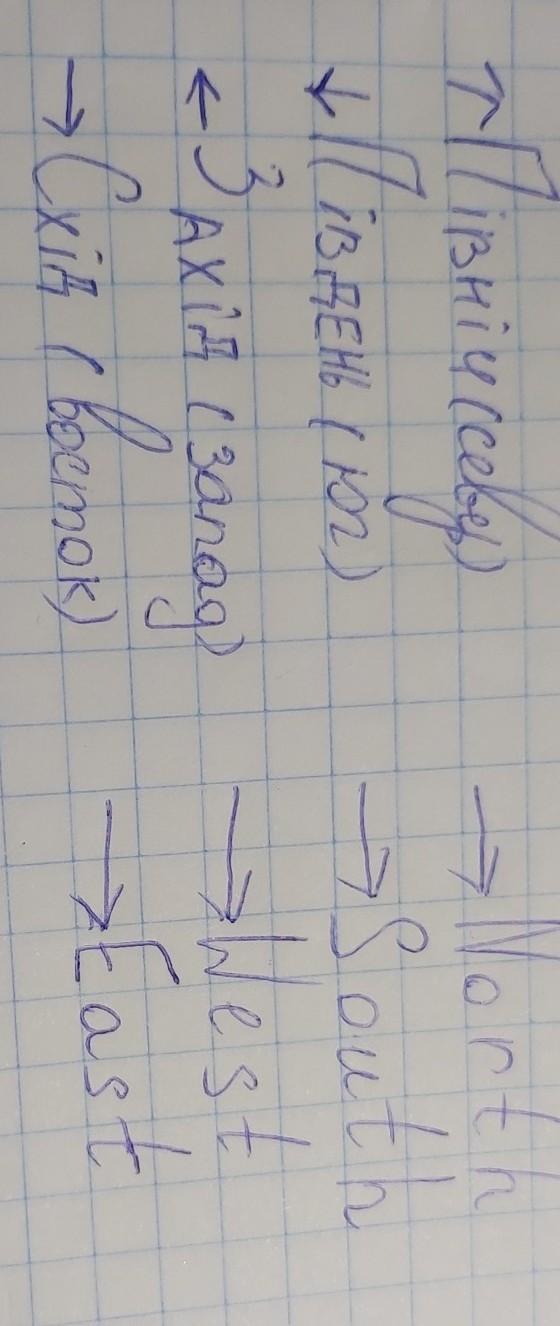 ↑ Північ (север) → North
↓ Південь (юг) → South
← Захід (запад) → West
→ Схід (восток) → East